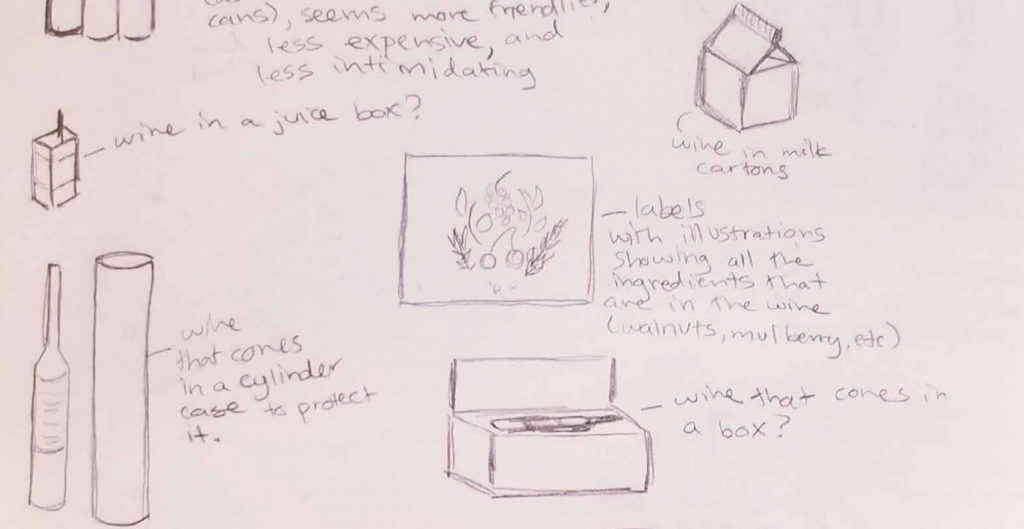 cans), seems more friendlier,
less expensive, and
less intimidating
wine in a juice box?
wine in milk
cartons
labels
with illustrations
showing all the
ingredients that
are in the wine
(walnuts, mulberry, etc)
wine
that cones
in a cylinder
case to protect
it.
wine that cones in
a box?